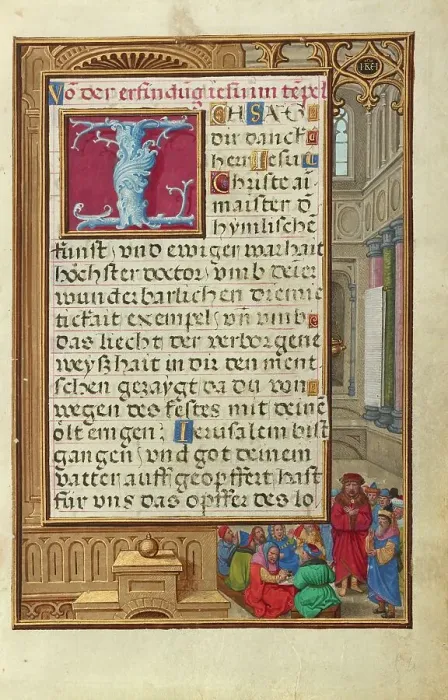 Võ der erfindũg iesu im tẽpel
ICH SAG
dir danck
herr Iesu
Christe ai
maister d
hymlischẽ
kunst, vnd ewiger warhait
höchster doctor, vmb deiner
wunderbarlichen diemie
tickait exempel, vñ vmb
das liecht der verborgene
weyßhait in dir den ment
schen gezaygt da du von
wegen des festes mit deinẽ
ölt ern gen Ierusalem bist
gangen, vnd got deinem
vatter auff geopffert hast
für vns das opffer des lo